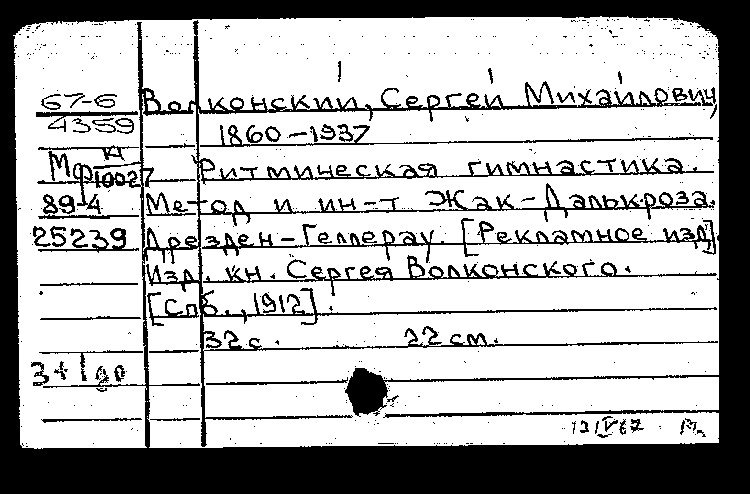 67-6 Волконский, Сергей Михайлович,
4359 1860-1937
Мф К1/10027 Ритмическая гимнастика.
89-4 Метод и ин-т Жак-Далькроза.
25239 Дрезден-Геллерау. [Рекламное изд].
Изд. кн. Сергея Волконского.
[Спб., 1912].
32 с. 22 см.
3+1